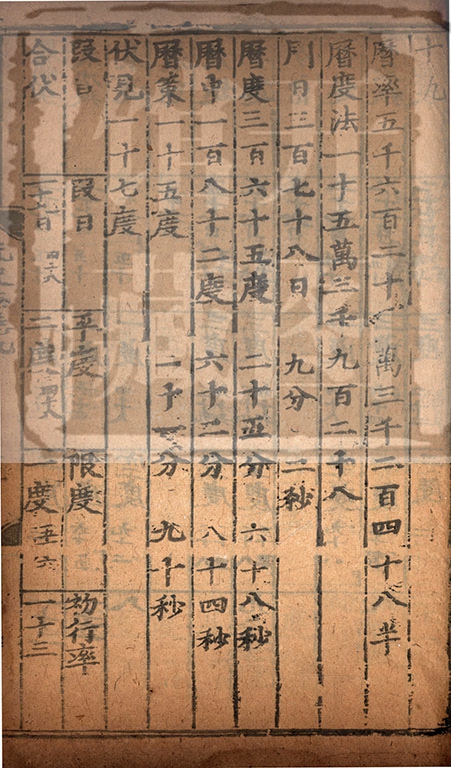 十九
曆率五千六百二十一萬三千二百四十八半
曆度法一十五萬三千九百二十八
周日三百七十八日 九分 二秒
曆度三百六十五度 二十五分 六十八秒
曆中一百八十二度 六十二分 八十四秒
曆策一十五度 二十一分 九十秒
伏見一十七度
段目 段日 平度 限度 初行率
合伏 日 度 一度五六 一十二